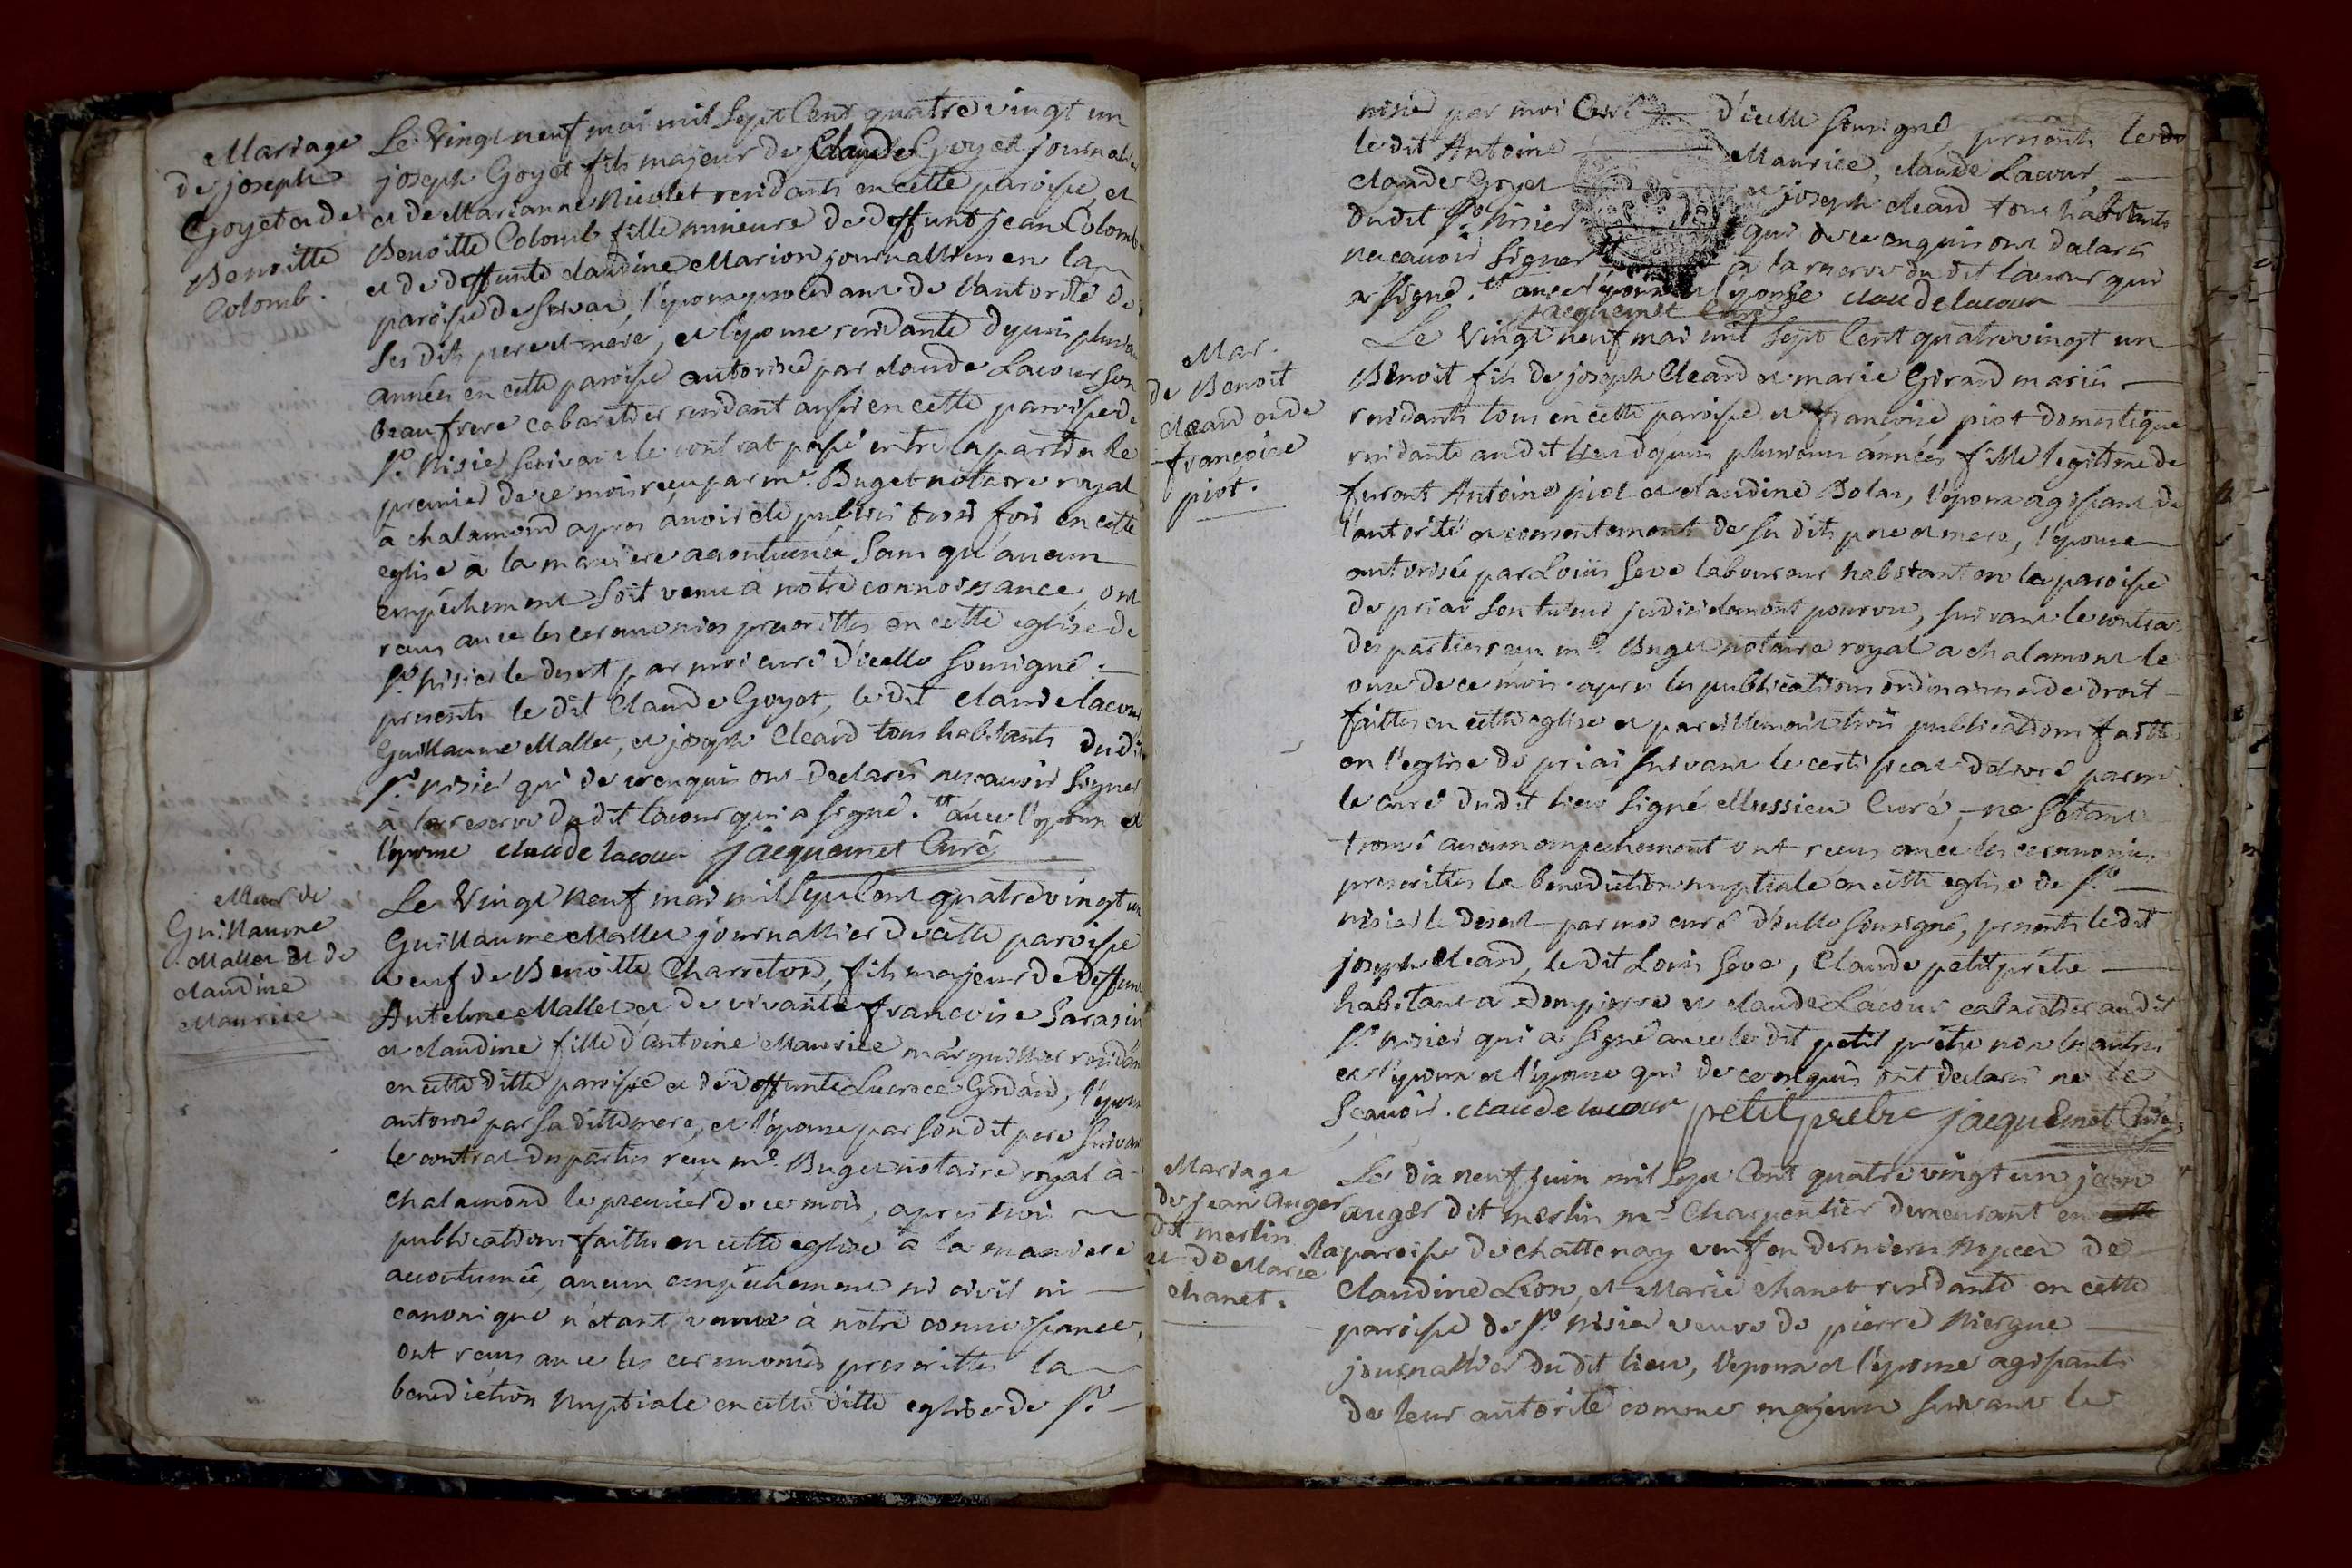 Mariage
de joseph
Goyet et de
Benoitte
Colomb.
Le vingt neuf mai mil sept Cent quatre vingt un
joseph Goyet fils majeur de Claude Goyet journalier
et de Marianne Nicolet residants en cette paroisse, et
Benoitte Colomb fille mineure de deffunt jean Colomb
et de deffunte claudine Marion journalliers en la
paroisse de l'époux procedant de l'autorité de
ses dits pere et mere, et l'epouse residante depuis plusieurs
années en cette paroisse autorisée par claude Lacour son
beaufrere cabaretier residant aussi en cette paroisse de
St. Nisier suivant le contrat passé entre la partie le
premier de ce mois reçu par me. Buget notaire royal
à chalamond apres avoir été publiés trois fois en cette
eglise à la maniere accoutumée sans qu'aucun
empêchement soit venu à notre connoissance, ont
reçus avec les ceremonies prescrittes en cette eglise de
St. Nisier le desert par moi curé d'icelle sousigné.
presents le dit Claude Goyet, le dit claude lacour
Guillaume Mallet, et joseph Cleard tous habitants du dit
St. nisier qui de ce enquis ont declarés ne scavoir signer
à la reserve du dit lacour qui a signé. avec l'epoux et
l'epouse claude lacour jacquemet Curé
Mar. de
Guillaume
Mallet et de
claudine
Maurice
Le Vingt Neuf mai mil sept Cent quatre vingt un
Guillaume Mallet journallier de cette paroisse
veuf de Benoitte Charreton, fils majeur de deffunt
Antelme Mallet et de vivante francoise Sarasin
et claudine fille d'antoine Maurice marguillier residant
en cette ditte paroisse et de deffunte Lucrece Godard, l'epoux
autorisé par sa ditte mere, et l'epouse par son dit pere suivant
le contrat des parties reçu me. Buget notaire royal à
chalamond le premier de ce mois, apres trois
publications faittes en cette eglise à la maniere
accoutumée, aucun empêchement ni civil ni
canonique n'étant venu à notre connoissance,
ont reçus avec les ceremonies prescrittes la
benediction Nuptiale en cette ditte eglise de St.
nisier par moi Curé d'icelle sousigné, presents le dit
le dit Antoine Maurice, claude Lacour,
claude Goyet et joseph cleard tous habitants
du dit St. Nisier qui de ce enquis ont declarés
ne scavoir signer à la reserve du dit lacour qui
a signé. avec l'epoux et l'epouse claude lacour
jacquemet Curé
Mar.
de Benoit
cleard et de
françoise
piot.
Le Vingt neuf mai mil sept Cent quatre vingt un
Benoit fils de joseph Cleard et marie Girard mariés
residants tous en cette paroisse et françoise piot domestique
residante audit lieu depuis plusieurs années fille legitime de
furent Antoine piot et claudine Bolas, l'époux agissant de
l'autorité et consentement de ses dits pere et mere, l'épouse
autorisée par Loüis Seve laboureur habitant en la paroisse
de priai son tuteur judicielement pourvu, suivant le contrat
des parties reçu me. Buget notaire royal a chalamont le
onze de ce mois. apres les publications ordinaires et de droit
faittes en cette eglise et pareillement trois publications faittes
en l'eglise de priai suivant le certificat delivré par mr.
le curé du dit lieu signé Mussieu Curé, ne s'etant
trouvé aucun empechement ont reçus avec les ceremonies
prescrittes la benediction nuptiale en cette eglise de St.
nisier le desert par moi curé d'icelle sousigné, presents le dit
joseph cleard, le dit Louis Seve, Claude petit prêtre
habitant a Dompierre et claude Lacour cabaretier au dit
St. nisier qui a signé avec le dit petit prêtre non les autres
et l'epoux et l'epouse qui de ce enquis ont declarés ne le
scavoir. claude lacour petit pretre jacquemet Curé
Mariage
de jean Auger
dit merlin
et de Marie
chanet.
Le dix neuf juin mil sept Cent quatre vingt un jean
auger dit merlin me. Charpentier demeurant en cette
la paroisse de chattenay veuf en dernieres Nopces de
Claudine Lion, et Marie Chanet residante en cette
paroisse de St. Nisier veuve de pierre Niergue
journallier du dit lieu, l'epoux et l'épouse agissants
de leur autorité comme majeurs suivant le